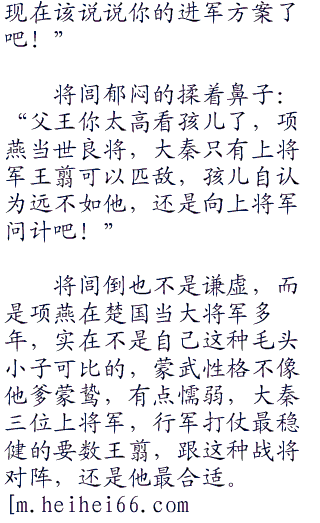 现在该说说你的进军方案了
吧！”
将闾郁闷的揉着鼻子：
“父王你太高看孩儿了，项
燕当世良将，大秦只有上将
军王翦可以匹敌，孩儿自认
为远不如他，还是向上将军
问计吧！”
将闾倒也不是谦虚，而
是项燕在楚国当大将军多
年，实在不是自己这种毛头
小子可比的，蒙武性格不像
他爹蒙骜，有点懦弱，大秦
三位上将军，行军打仗最稳
健的要数王翦，跟这种战将
对阵，还是他最合适。
[m.heihei66.com